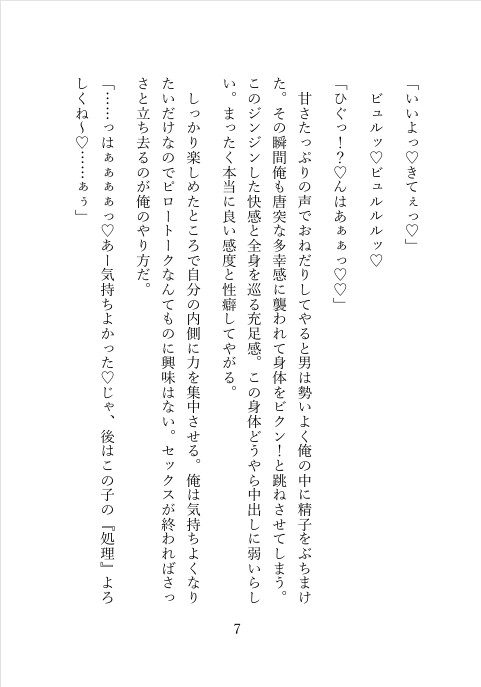 「いいよっ♡きてぇっ♡」
ビュルッ♡ビュルルルッ♡
「ひぐっ！？♡んはあぁぁっ♡♡」
甘さたっぷりの声でおねだりしてやると男は勢いよく俺の中に精子をぶちまけ
た。その瞬間俺も唐突な多幸感に襲われて身体をビクン！と跳ねさせてしまう。
このジンジンした快感と全身を巡る充足感。この身体どうやら中出しに弱いらし
い。まったく本当に良い感度と性癖してやがる。
しっかり楽しめたところで自分の内側に力を集中させる。俺は気持ちよくなり
たいだけなのでピロートークなんてものに興味はない。セックスが終わればさっ
さと立ち去るのが俺のやり方だ。
「……っはぁぁぁぁっ♡あー気持ちよかった♡じゃ、後はこの子の『処理』よろ
しくね〜♡……ぁぅ」
7